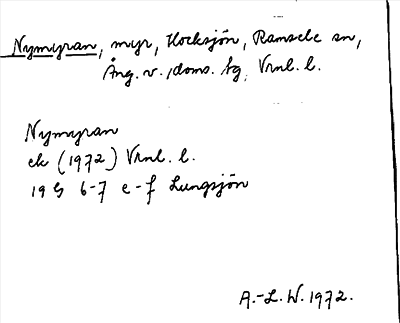 Nymyran, myr, Hocksjön, Ramsele sn,
Ång. v. doms. tg, Vrnl. l.
Nymyran
ek (1972) Vrnl. l.
19 G 6-7 e-f Lungsjön
A.-L. W. 1972.